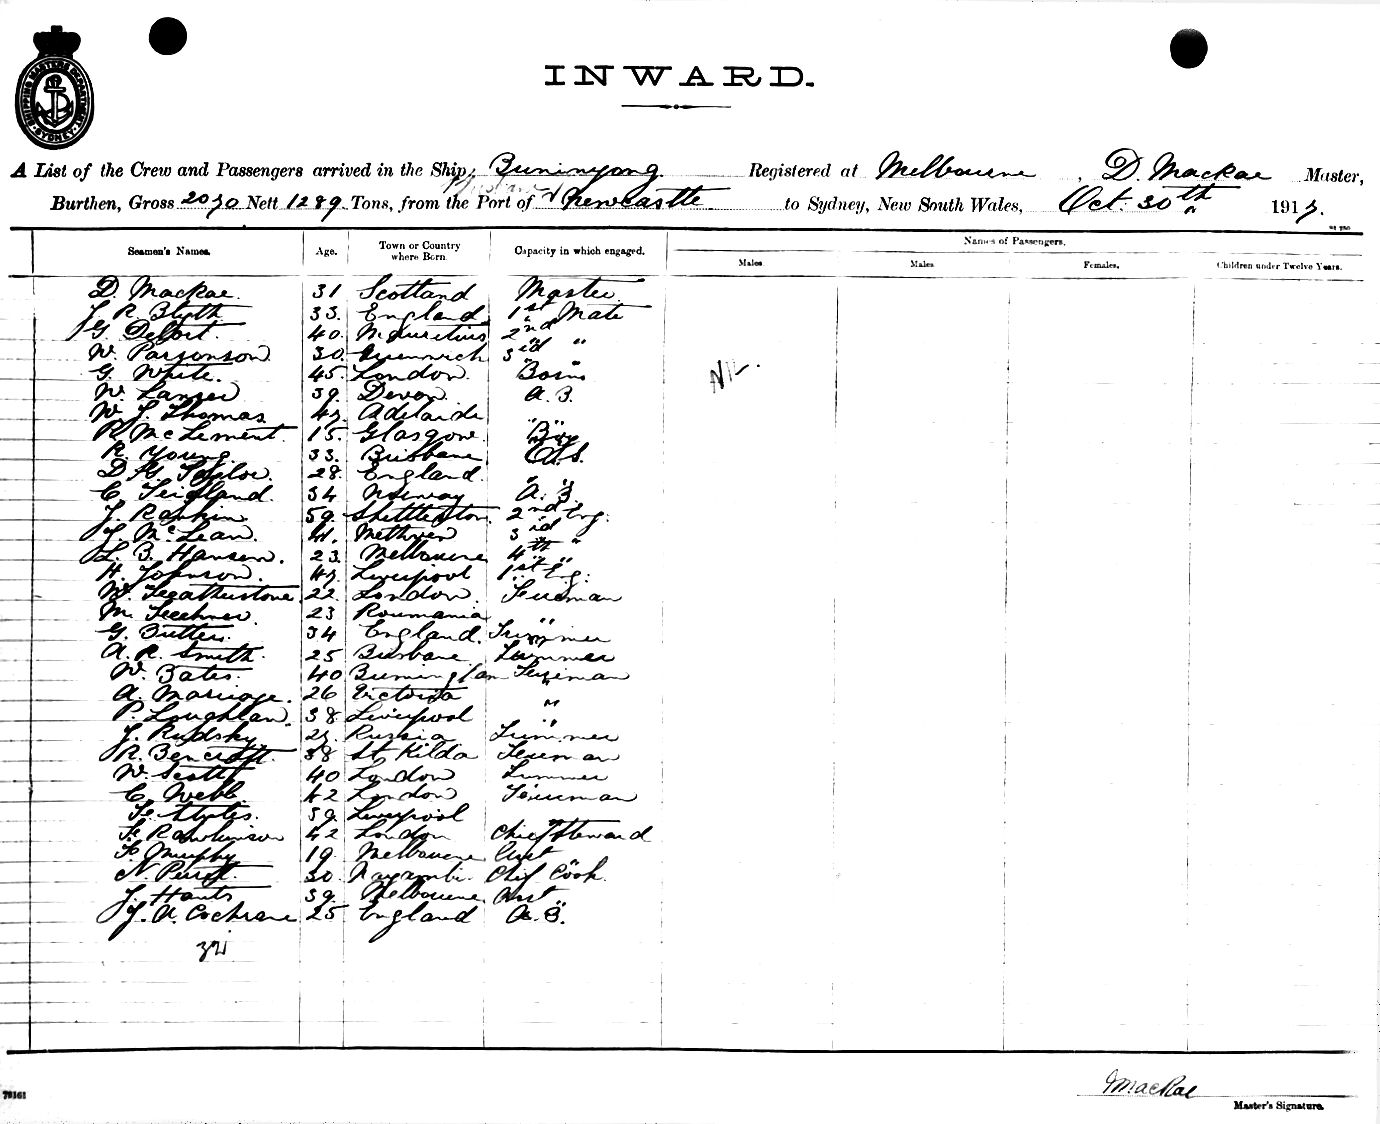 SHIPPING MASTERS DEPARTMENT SYDNEY
INWARD.
A List of the Crew and Passengers arrived in the Ship, Buninyong. Registered at Melbourne, D. MacRae Master,
Burthen, Gross 2070 Nett 1289 Tons, from the Port of Newcastle to Sydney, New South Wales, Oct. 30th 1917.
Seamen's Names. Age. Town or Country where Born. Capacity in which engaged. Names of Passengers.
Males Males Females. Children under Twelve Years.
D. MacRae. 31 Scotland Master
J. R. Blyth 33. England 1st Mate
G. Delort. 40. Mauritius 2nd "
W. Parsonson 30. Greenwich 3rd "
G. White. 45. London. Bosn
NIL.
W. 39. Devon. A.B.
W. J. Thomas 47. Adelaide "
R. McLement. 15. Glasgow. Boy
R. Young. 33. Brisbane
D. G. Taylor. 28. England. "
C. 34 Norway A.B.
J. Rankin 59. Shettleston. 2nd Eng.
J. McLean. 41. Methven 3rd "
L. B. Hansen. 23. Melbourne 4th "
H. Johnson. 47. Liverpool 1st Eng.
W. Featherstone. 22. London. Fireman
M. 23 Roumania "
G. Butters. 34 England. Trimmer
A. R. Smith. 25 Brisbane Trimmer
W. Bates. 40 Birmingham Fireman
A. Marriage. 26 Victoria "
P. Loughlan. 38. Liverpool "
J. Rudsky 27. Russia Trimmer
R. Bencroft. 38 St Kilda Fireman
W. Scott 40 London Trimmer
C. Webb. 42 London Fireman
F. Styles. 39. Liverpool "
F. Rawlinson 42 London Chief Steward
F. Murphy 19. Melbourne Asst "
N. 30. Chief Cook.
J. 39. Melbourne. Asst "
J. A. Cochrane 25 England A.B.
32
MacRae
79161 Master's Signature.